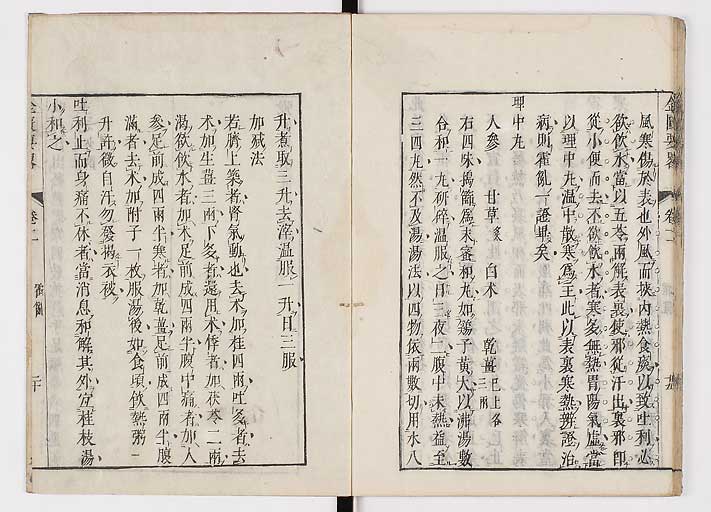 風寒傷於表也外風而挾內熱食𩜋以致吐利必
欲飲水當以五苓兩解表裏使邪從汗出裏邪即
從小便而去不欲飲水者寒多無熱胃陽氣虛當
以理中丸溫中散寒為主此以表裏寒熱辨證治
病則霍亂一證畢矣
理中丸
人參 甘草炙 白朮 乾薑已上各三兩
右四味搗篩為末蜜和丸如雞子黃大以沸湯數
合和一丸研碎溫服之日三夜二腹中未熱益至
三四丸然不及湯湯法以四物依兩數切用水八
升煮取三升去滓溫服一升日三服
加減法
若臍上築者腎氣動也去朮加桂四兩吐多者去
朮加生薑三兩下多者還用朮悸者加茯苓二兩
渴欲飲水者加朮足前成四兩半腹中痛者加人
參足前成四兩半寒者加乾薑足前成四兩半腹
滿者去朮加附子一枚服湯後如食頃飲熱粥一
升許微自汗勿發揭衣被
吐利止而身痛不休者當消息和解其外宜桂枝湯
小和之
卷二